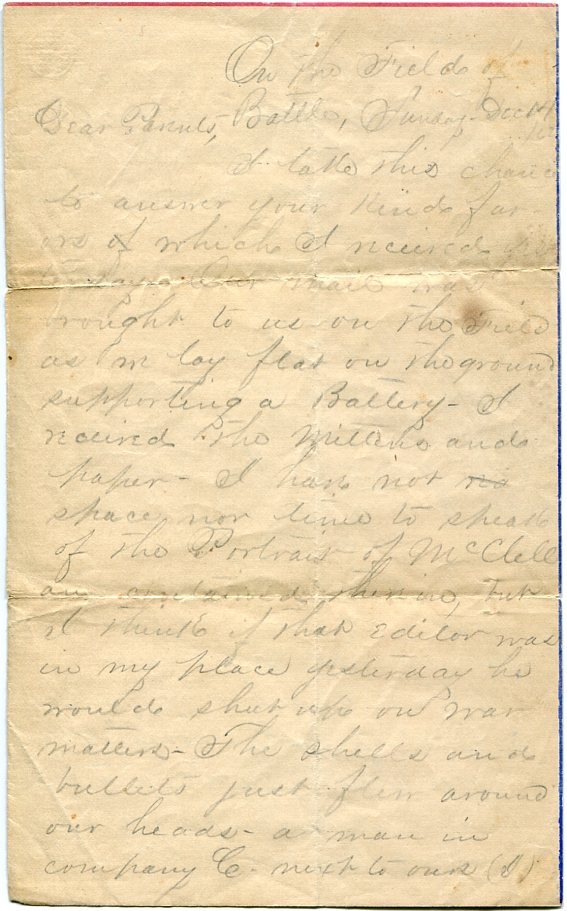 On the Field of
Dear Parents, Battle, Sunday Dec 14
I take this chance
to answer your kind fav-
ors of which I received yes
Our mail was
brought to us on the Field
as we lay flat on the ground
supporting a Battery - I
received the mittens and
paper - I have not no
space nor time to speak
of the Portrait of McClell
an contained therein, but
I think if that Editor was
in my place yesterday he
would shut up on war
matters - The shells and
bullets just flew around
our heads - a man in
company C. next to ours (I)